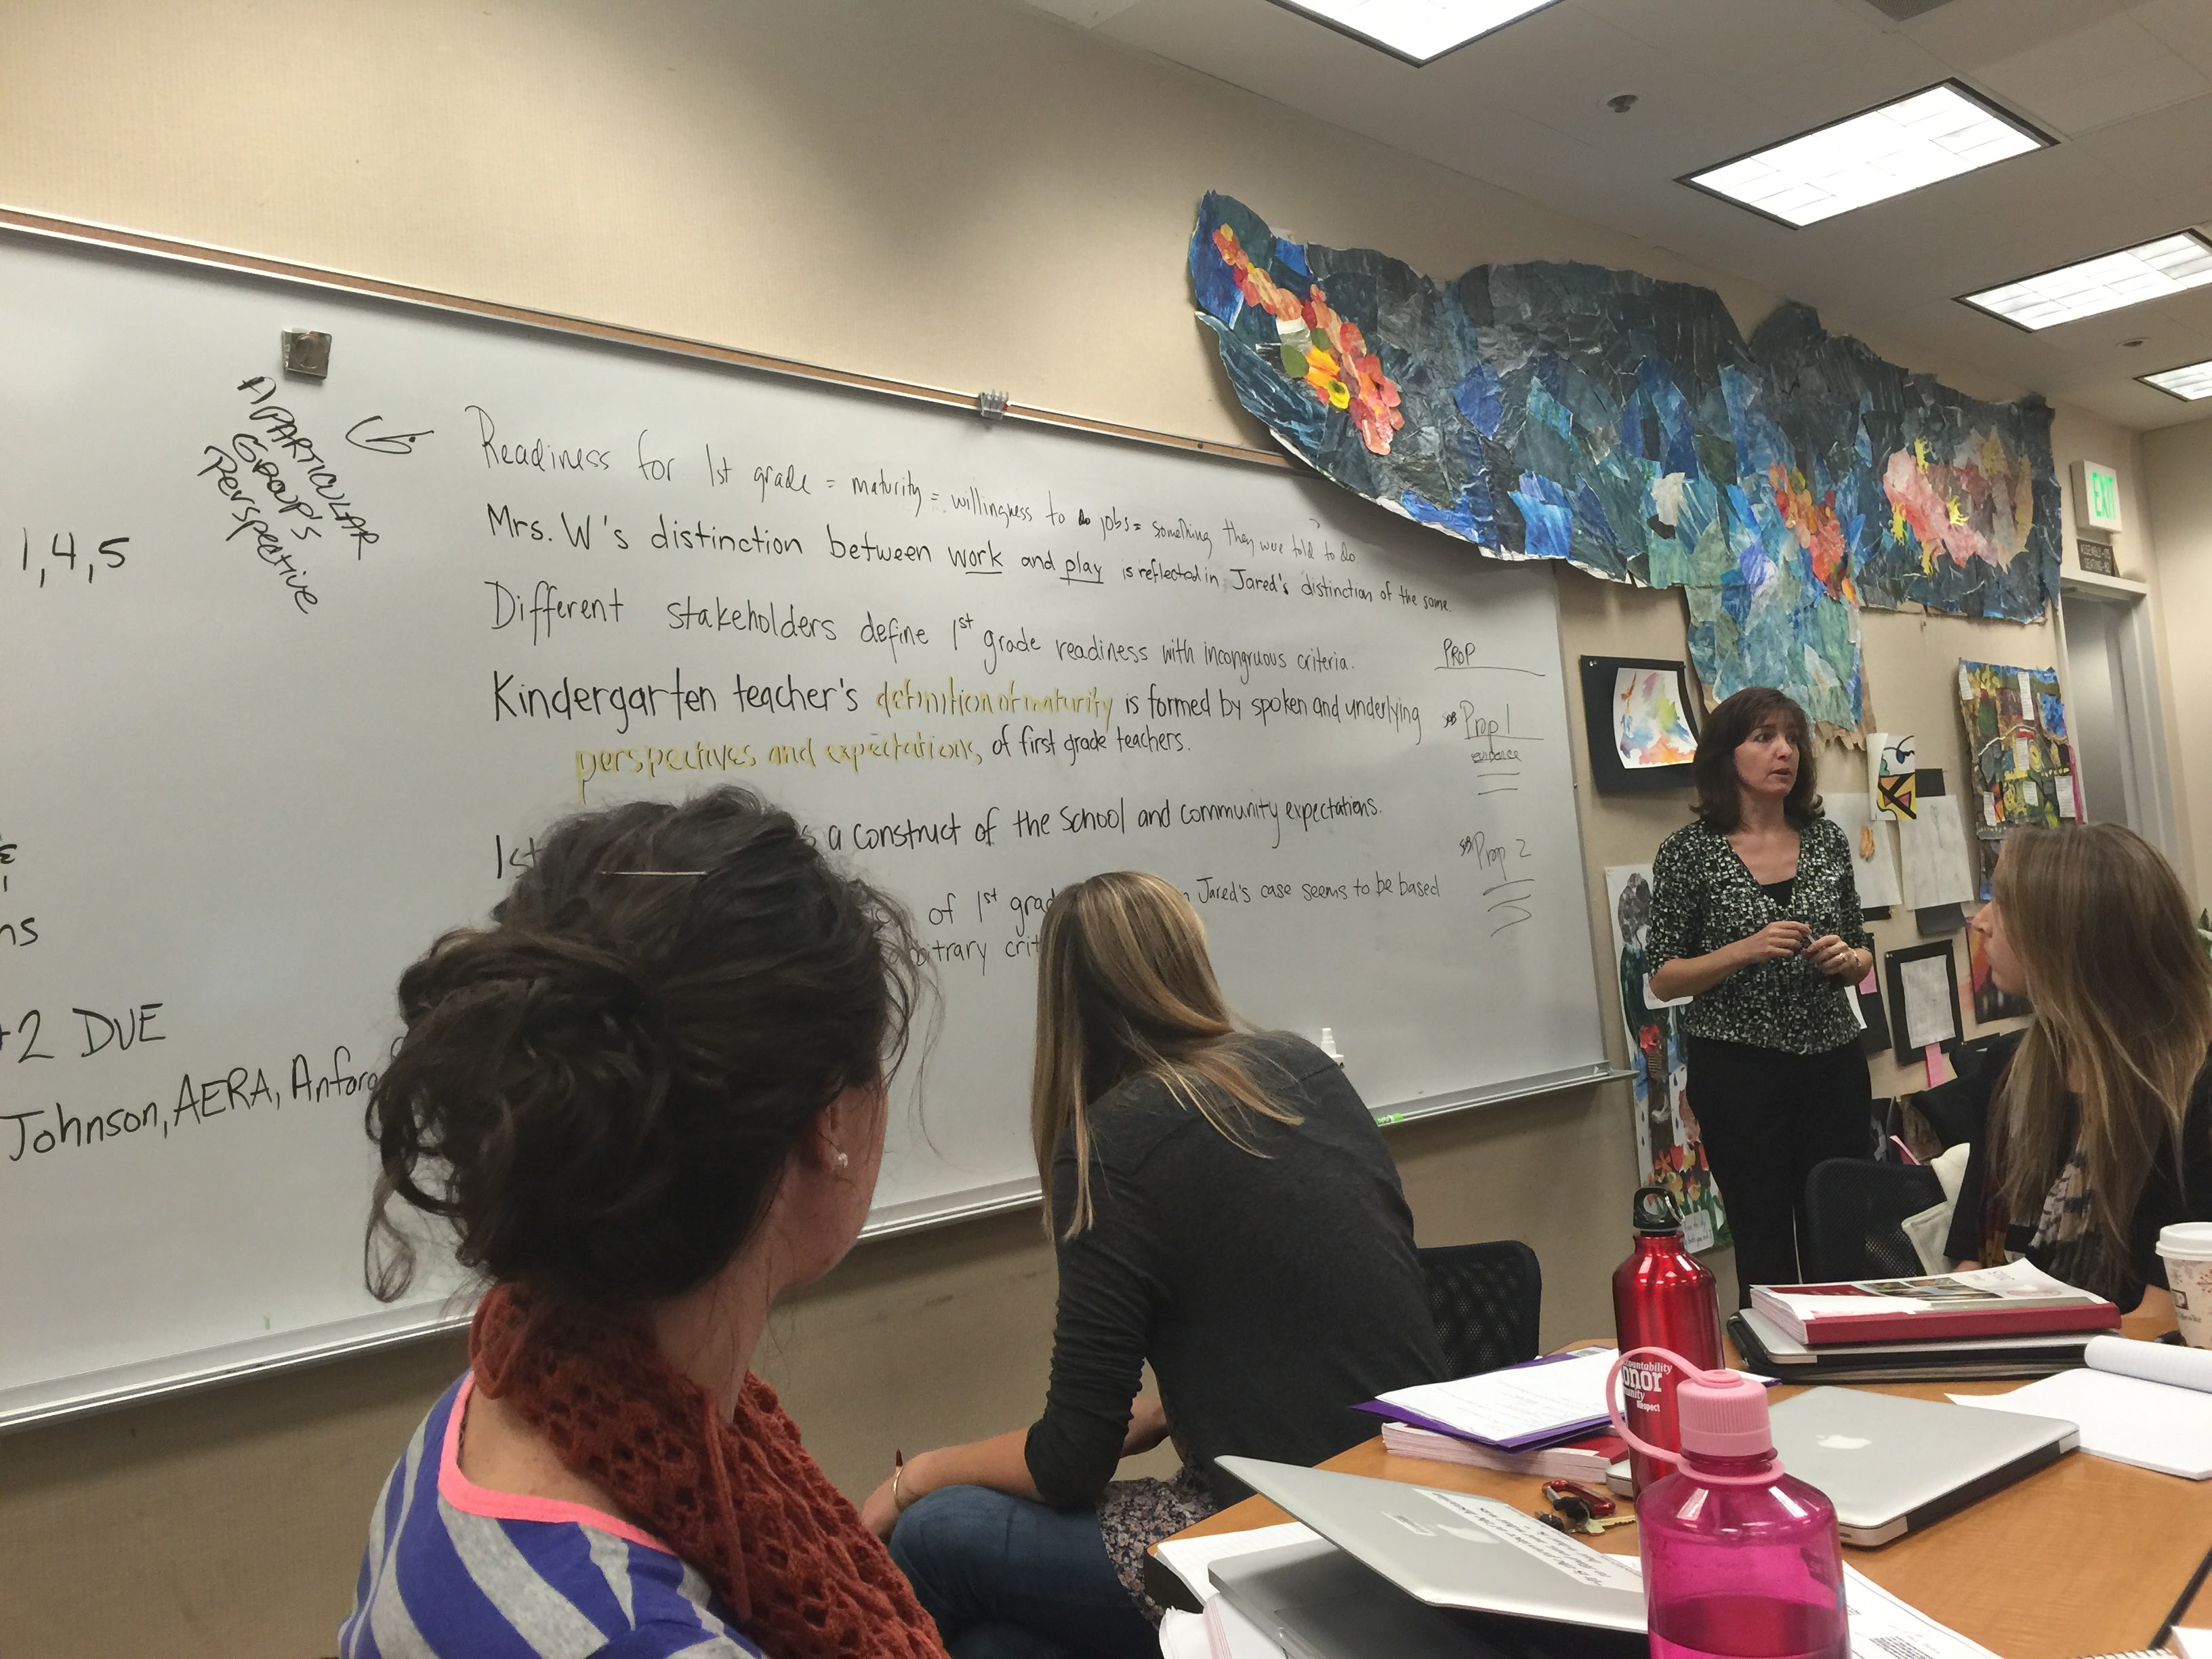 A PARTICULAR
GROUP'S
Perspective
Readiness for 1st grade = maturity = willingness to do jobs = something they were told to do
Mrs. W's distinction between work and play is reflected in Jared's distinction of the same.
Different stakeholders define 1st grade readiness with incongruous criteria.
Kindergarten teacher's definition of maturity is formed by spoken and underlying
perspectives and expectations, of first grade teachers.
1st
a construct of the School and community expectations.
of 1st grad
Jared's case seems to be based
bitrary crit
1,4,5
ns
2 DUE
Johnson, AERA, Anfara
PROP
Prop 1
evidence
Prop 2
EXIT
countability
onor
unity
Respect